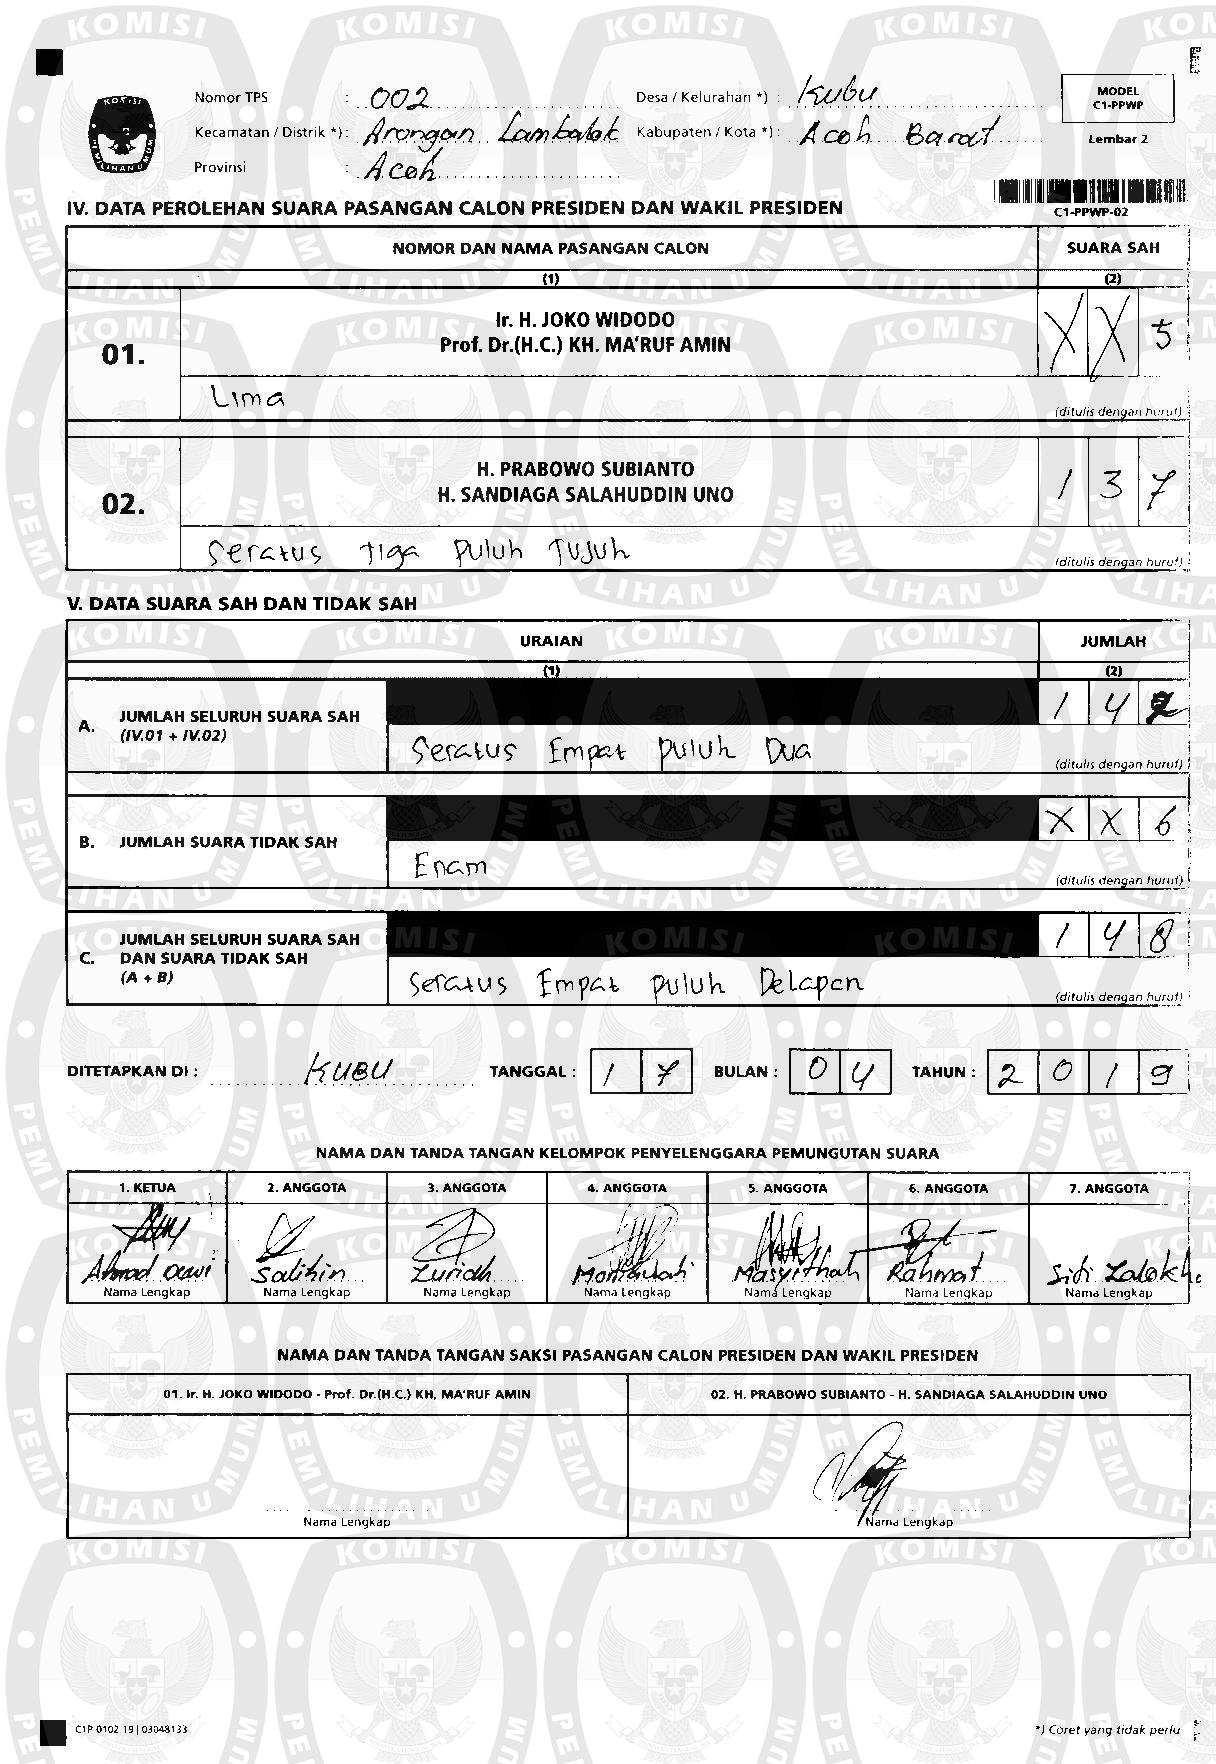 Nomor TPS : 002 Desa / Kelurahan *) : Kubu
Kecamatan / Distrik *) : Arongan Lambalek Kabupaten / Kota *) : Aceh Barat
Provinsi : Aceh
MODEL
C1-PPWP
Lembar 2
C1-PPWP-02
IV. DATA PEROLEHAN SUARA PASANGAN CALON PRESIDEN DAN WAKIL PRESIDEN
NOMOR DAN NAMA PASANGAN CALON SUARA SAH
(1) (2)
01. Ir. H. JOKO WIDODO
Prof. Dr.(H.C.) KH. MA'RUF AMIN X X 5
Lima
(ditulis dengan huruf)
02. H. PRABOWO SUBIANTO
H. SANDIAGA SALAHUDDIN UNO 1 3 7
Seratus Tiga Puluh Tujuh
(ditulis dengan huruf)
V. DATA SUARA SAH DAN TIDAK SAH
URAIAN JUMLAH
(1) (2)
A. JUMLAH SELURUH SUARA SAH
(IV.01 + IV.02) 1 4 2
Seratus Empat Puluh Dua
(ditulis dengan huruf)
B. JUMLAH SUARA TIDAK SAH X X 6
Enam
(ditulis dengan huruf)
C. JUMLAH SELURUH SUARA SAH
DAN SUARA TIDAK SAH
(A + B) 1 4 8
Seratus Empat Puluh Delapan
(ditulis dengan huruf)
DITETAPKAN DI : KUBU TANGGAL : 1 7 BULAN : 0 4 TAHUN : 2 0 1 9
NAMA DAN TANDA TANGAN KELOMPOK PENYELENGGARA PEMUNGUTAN SUARA
1. KETUA 2. ANGGOTA 3. ANGGOTA 4. ANGGOTA 5. ANGGOTA 6. ANGGOTA 7. ANGGOTA
Ahmad Salihin Zuriah Masyithah Rahmat Siti
Nama Lengkap Nama Lengkap Nama Lengkap Nama Lengkap Nama Lengkap Nama Lengkap Nama Lengkap
NAMA DAN TANDA TANGAN SAKSI PASANGAN CALON PRESIDEN DAN WAKIL PRESIDEN
01. Ir. H. JOKO WIDODO - Prof. Dr.(H.C.) KH. MA'RUF AMIN 02. H. PRABOWO SUBIANTO - H. SANDIAGA SALAHUDDIN UNO
Nama Lengkap Nama Lengkap
C1P 0102 19 | 03048133 *) Coret yang tidak perlu